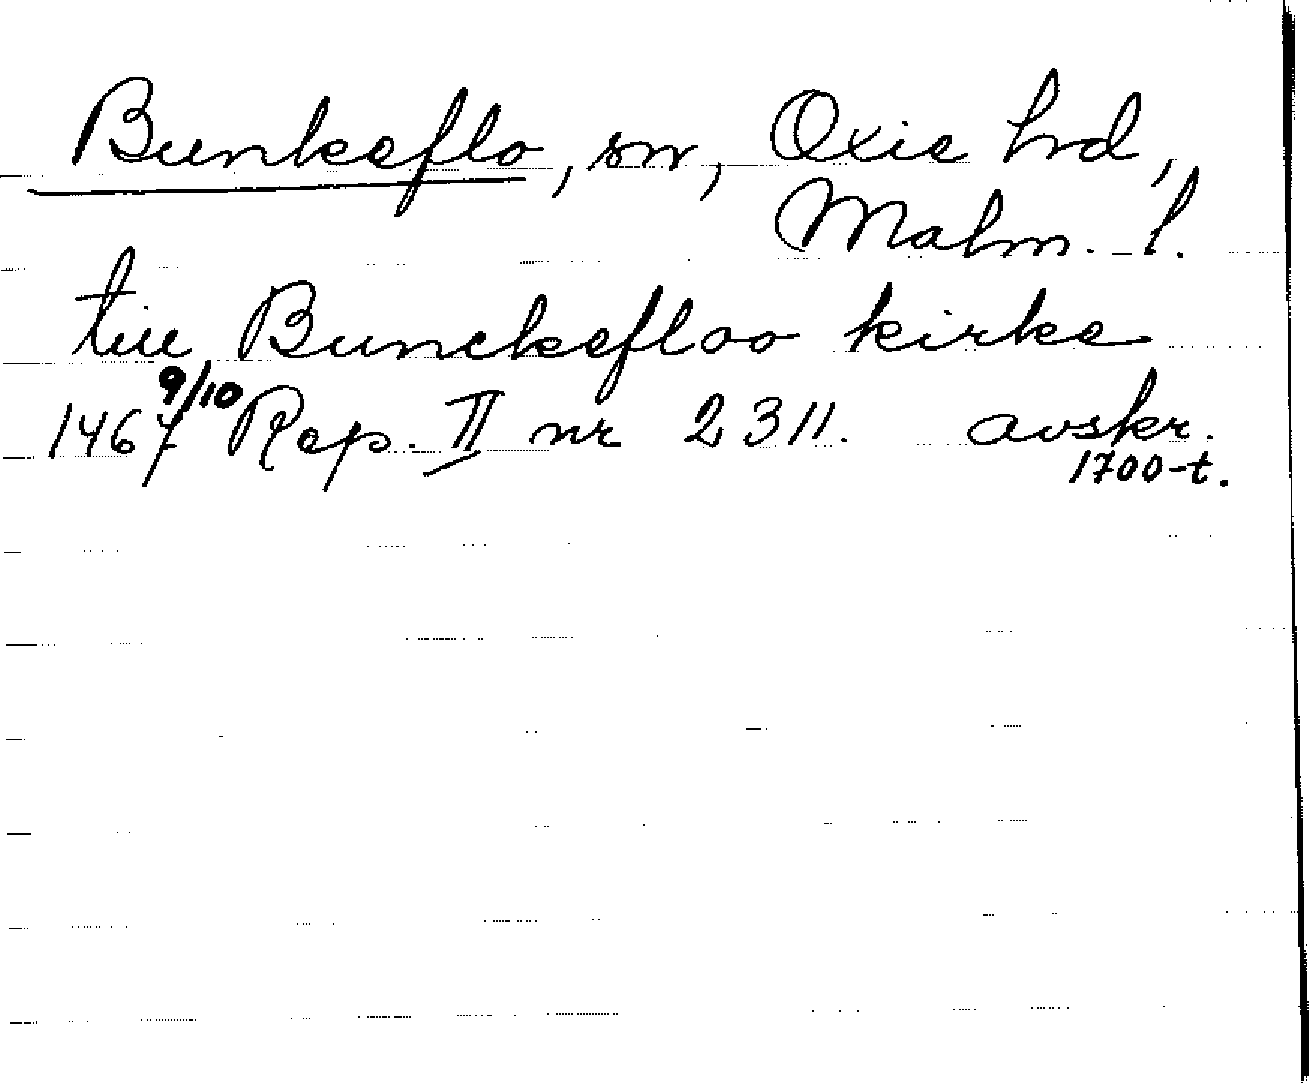 Bunkeflo, sn, Oxie hrd,
Malm. l.
till Bunckefloo kirke
1467 9/10 Rep. II nr 2311. avskr.
1700-t.